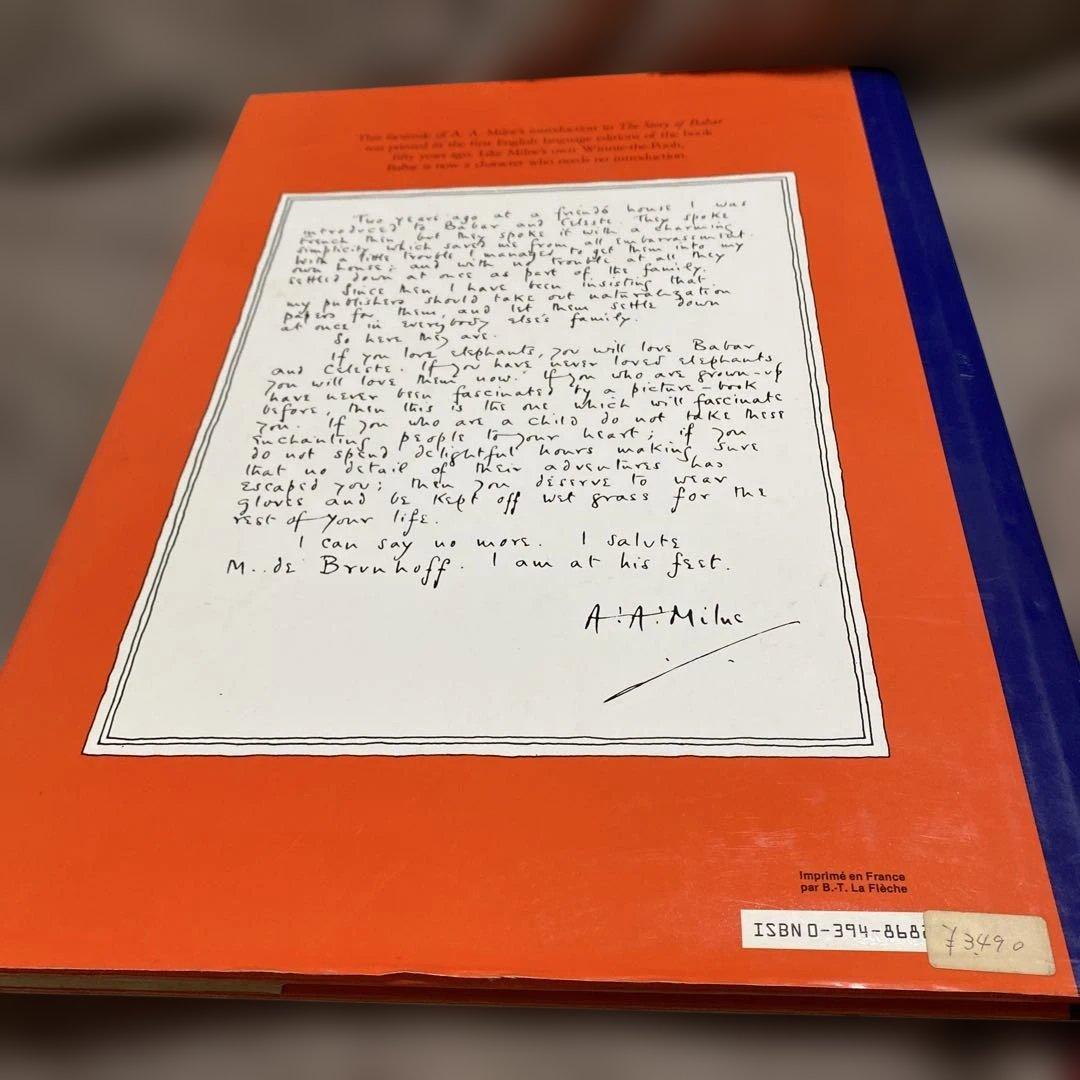 This facsimile of A. A. Milne's introduction to The Story of Babar
was printed in the first English language editions of the book
fifty years ago. Like Milne's own Winnie-the-Pooh,
Babar is now a character who needs no introduction.
Two years ago at a friend's house I was
introduced to Babar and Celeste. They spoke
French then but they spoke it with a charming
simplicity which saved me from all embarrassment.
With a little trouble I managed to get them into my
own house; and with no trouble at all they
settled down at once as part of the family.
Since then I have been insisting that
my publishers should take out naturalization
papers for them, and let them settle down
at once in everybody else's family.
So here they are.
If you love elephants, you will love Babar
and Celeste. If you have never loved elephants
you will love them now. If you who are grown-up
have never been fascinated by a picture-book
before, then this is the one which will fascinate
you. If you who are a child do not take these
enchanting people to your heart; if you
do not spend delightful hours making sure
that no detail of their adventures has
escaped you; then you deserve to wear
gloves and be kept off wet grass for the
rest of your life.
I can say no more. I salute
M. de Brunhoff. I am at his feet.
A. A. Milne
Imprimé en France
par B.-T. La Flèche
ISBN 0-394-868
¥3490